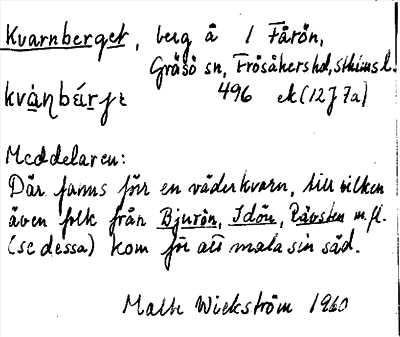 Kvarnberget, berg å 1 Fårön,
Gräsö sn, Frösåkers hd, sthlms l.
kvạ̀ṇbár̤jɛ 496 ek (12 J 7a)
Meddelaren:
Där fanns förr en väderkvarn, till vilken
även folk från Bjurön, Idön, Rävsten m.fl.
(se dessa) kom för att mala sin säd.
Malte Wickström 1960